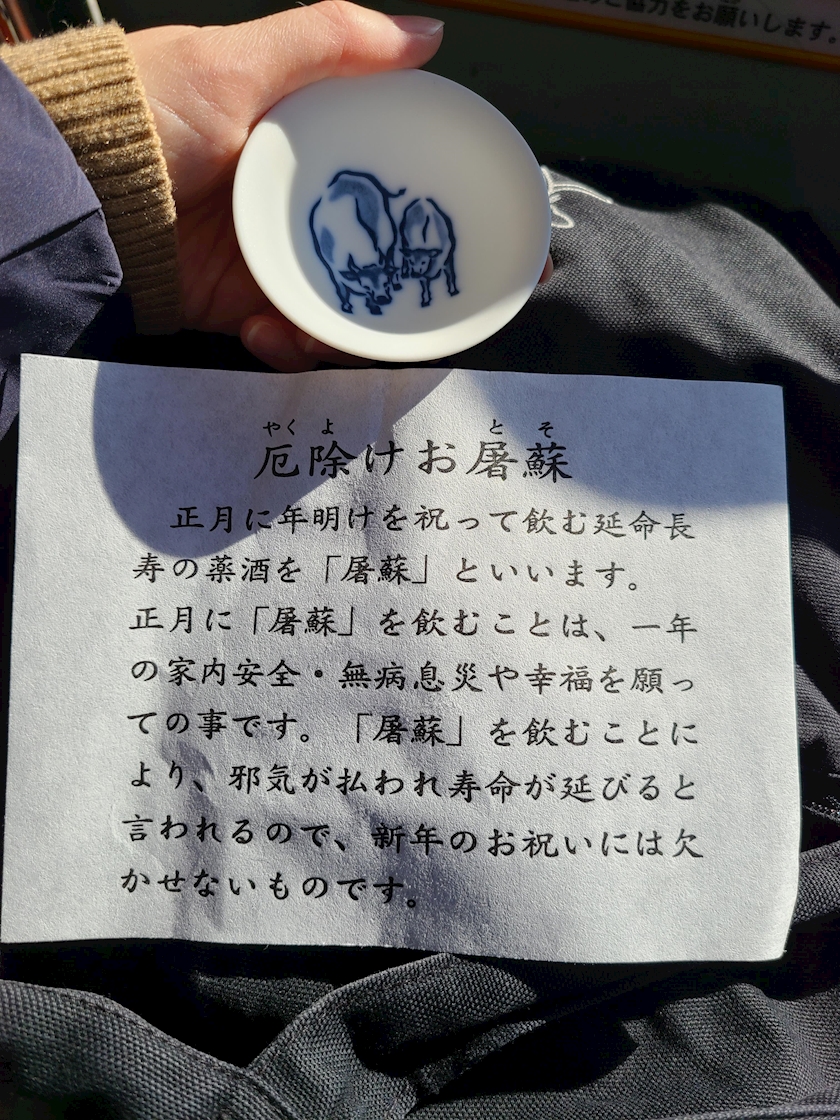 のご協力をお願いします。
やくよ とそ
厄除けお屠蘇
正月に年明けを祝って飲む延命長
寿の薬酒を「屠蘇」といいます。
正月に「屠蘇」を飲むことは、一年
の家内安全・無病息災や幸福を願っ
ての事です。「屠蘇」を飲むことに
より、邪気が払われ寿命が延びると
言われるので、新年のお祝いには欠
かせないものです。